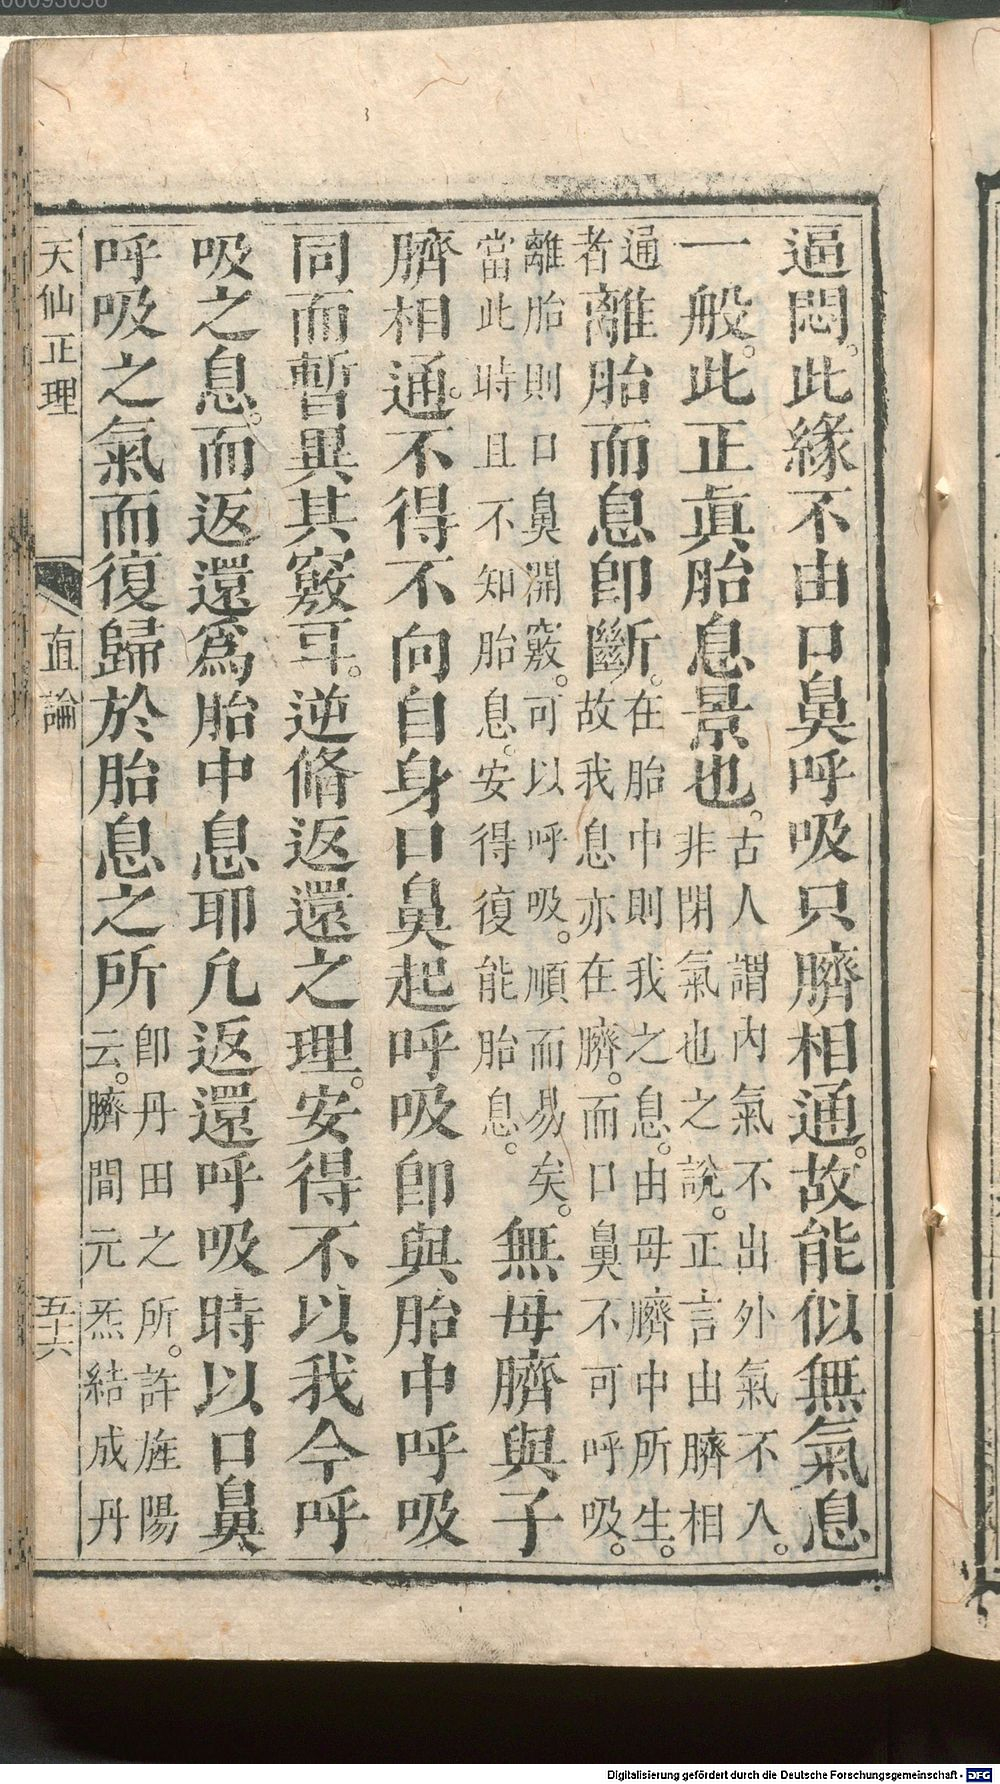 逼悶。此緣不由口鼻呼吸只臍相通。故能似無氣息
一般。此正眞胎息景也。古人謂內氣不出外氣不入。非閉氣也之說。正言由臍相
通者離胎而息卽斷。在胎中則我之息。由母臍中所生。故我息亦在臍。而口鼻不可呼吸。
離胎則口鼻開竅。可以呼吸。順而易矣。當此時且不知胎息。安得復能胎息。無母臍與子
臍相通。不得不向自身口鼻起呼吸卽與胎中呼吸
同而暫異其竅耳。逆脩返還之理。安得不以我今呼
吸之息。而返還爲胎中息耶凡返還呼吸時以口鼻
呼吸之氣而復歸於胎息之所卽丹田之所。許旌陽云。臍間元炁結成丹
天仙正理 直論 五十六
00093056
Digitalisierung gefördert durch die Deutsche Forschungsgemeinschaft - DFG